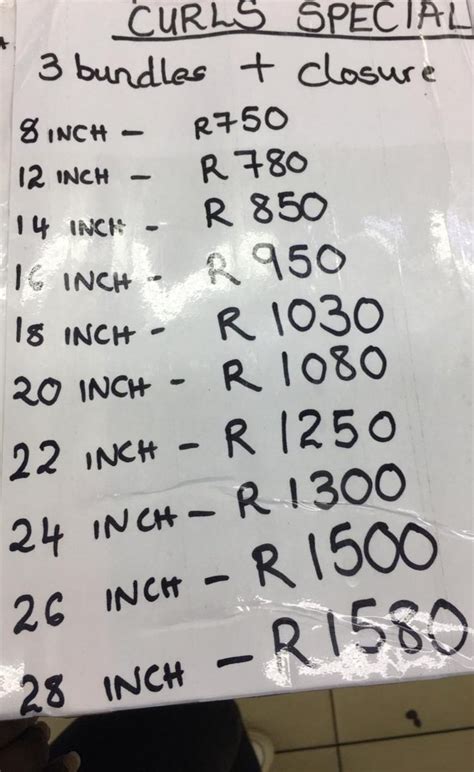 CURLS SPECIAL
3 bundles + closure
8 INCH - R750
12 INCH - R780
14 INCH - R 850
16 INCH - R 950
18 INCH - R 1030
20 INCH - R 1080
22 INCH - R 1250
24 INCH - R 1300
26 INCH - R 1500
28 INCH - R 1580